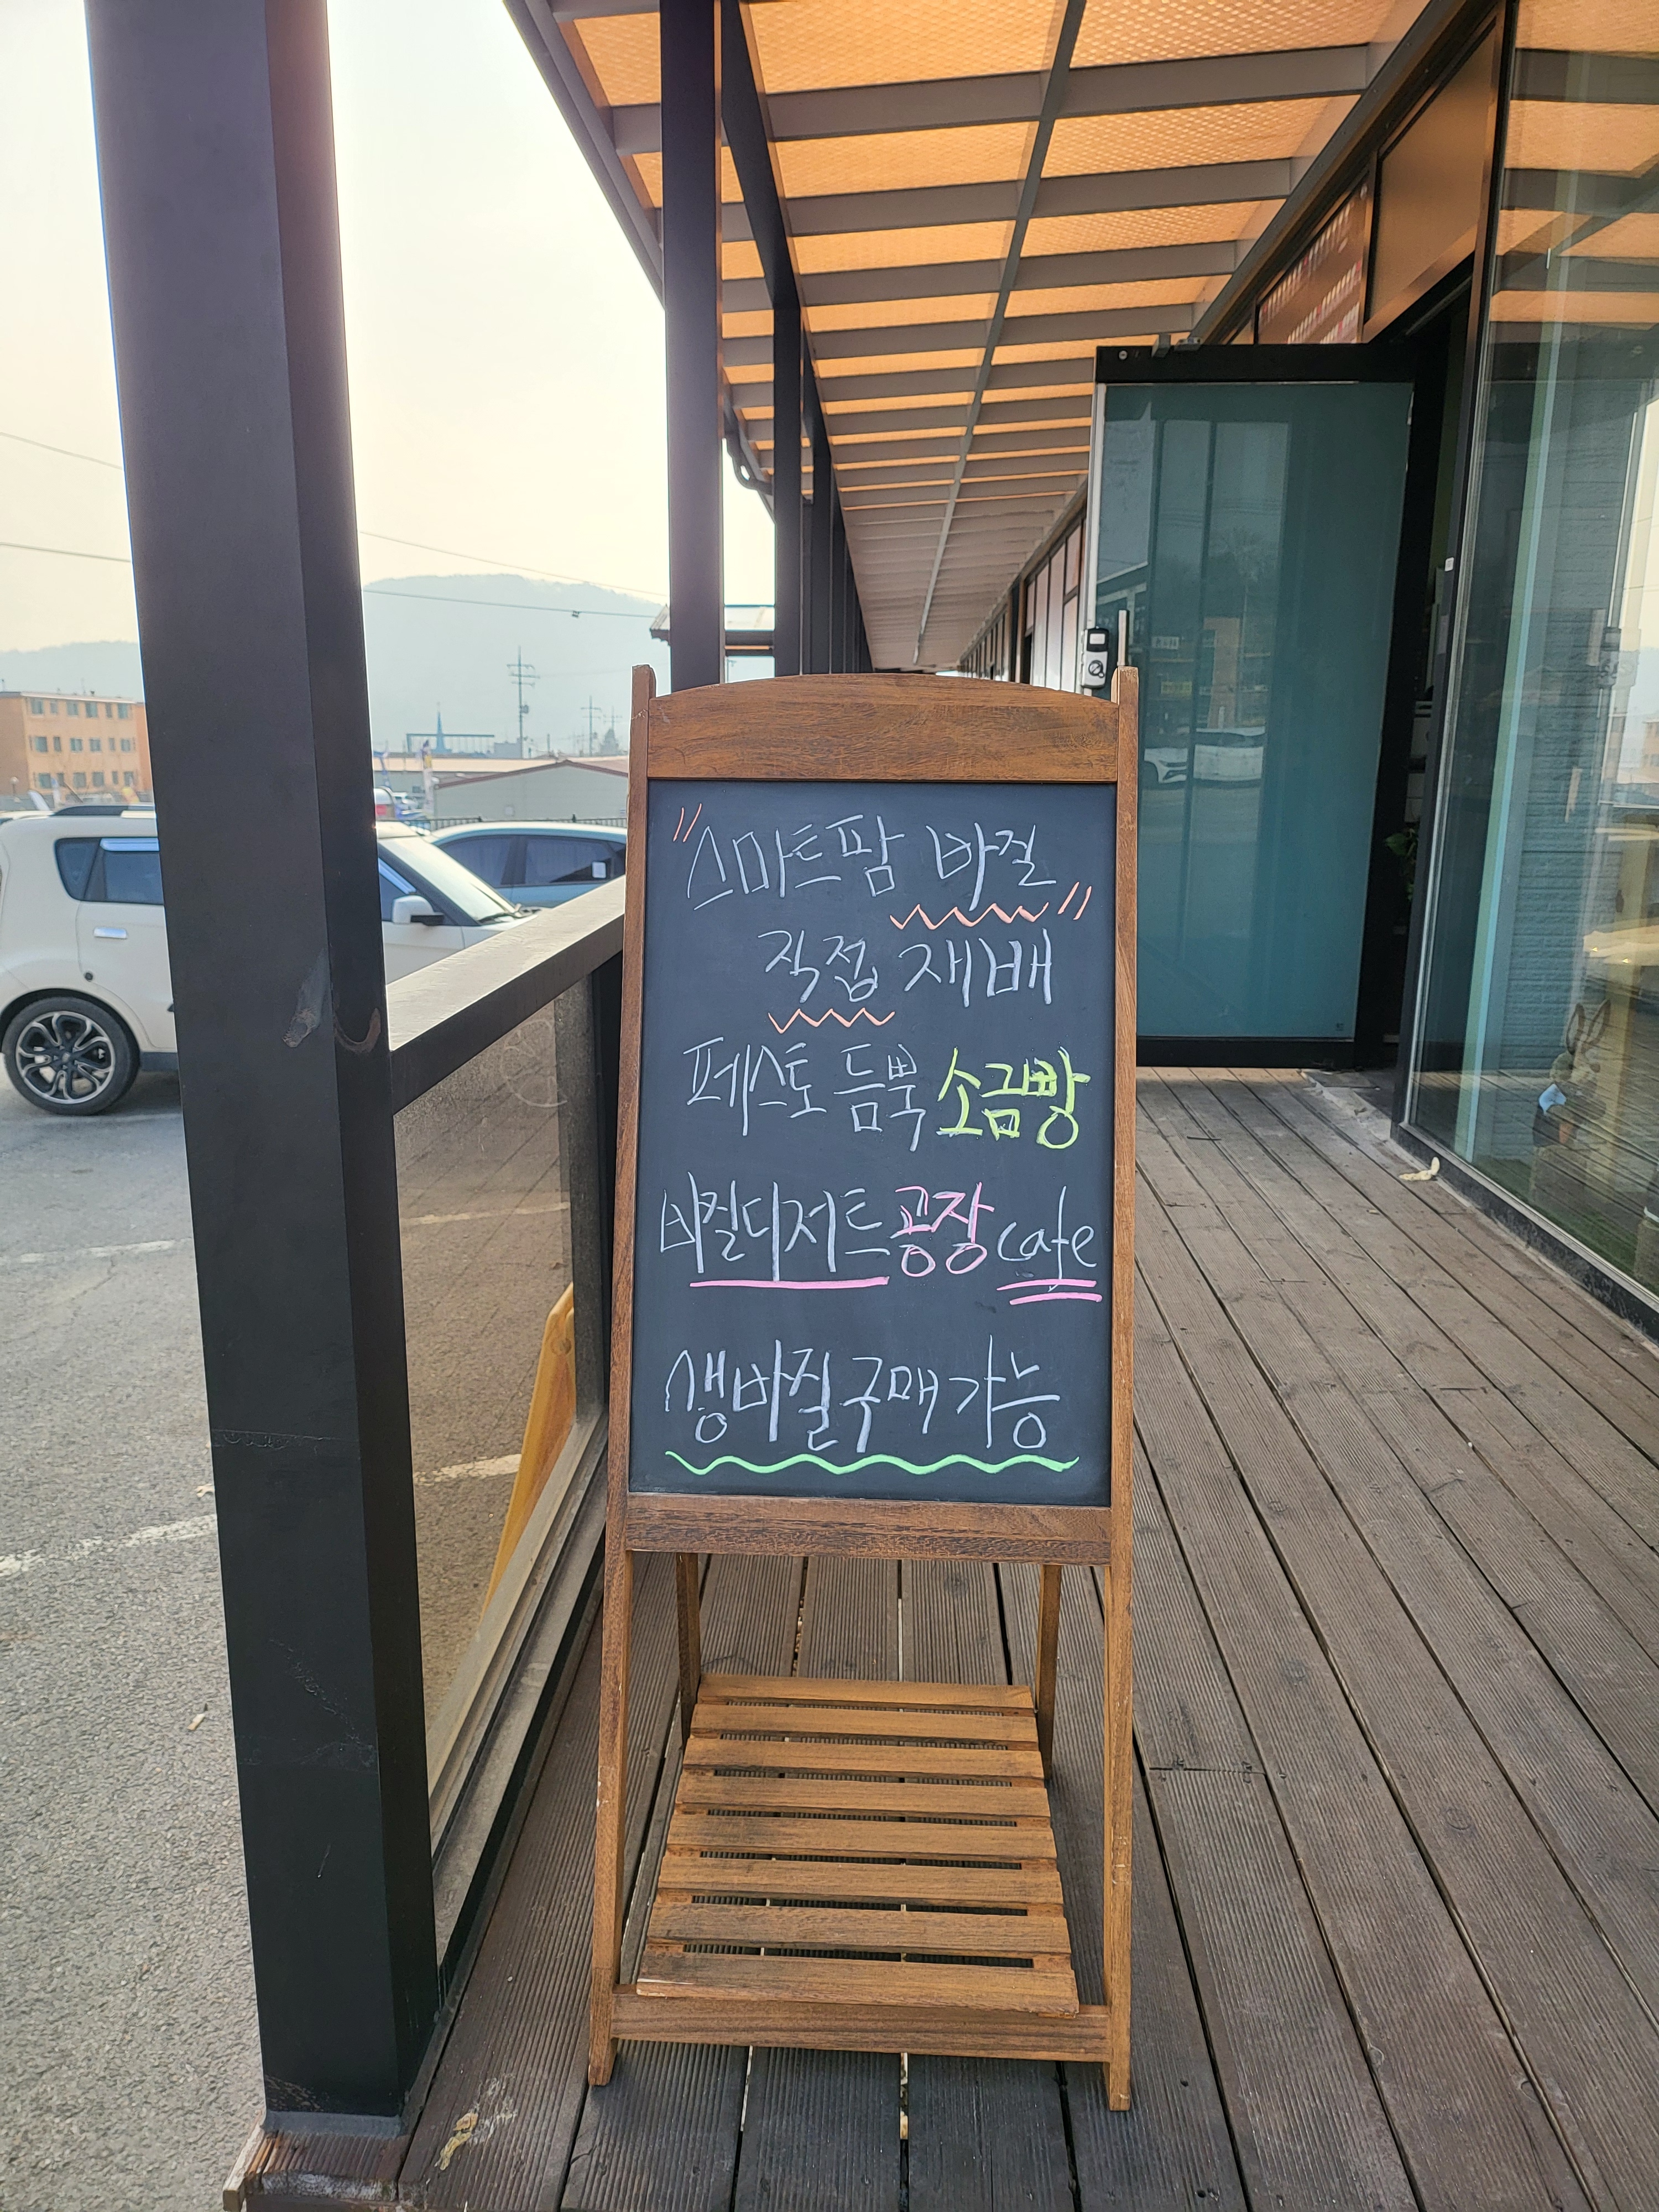 "스마트팜 바질"
직접 재배
페스토 듬뿍 소금빵
바질디저트공장 cafe
생바질구매가능